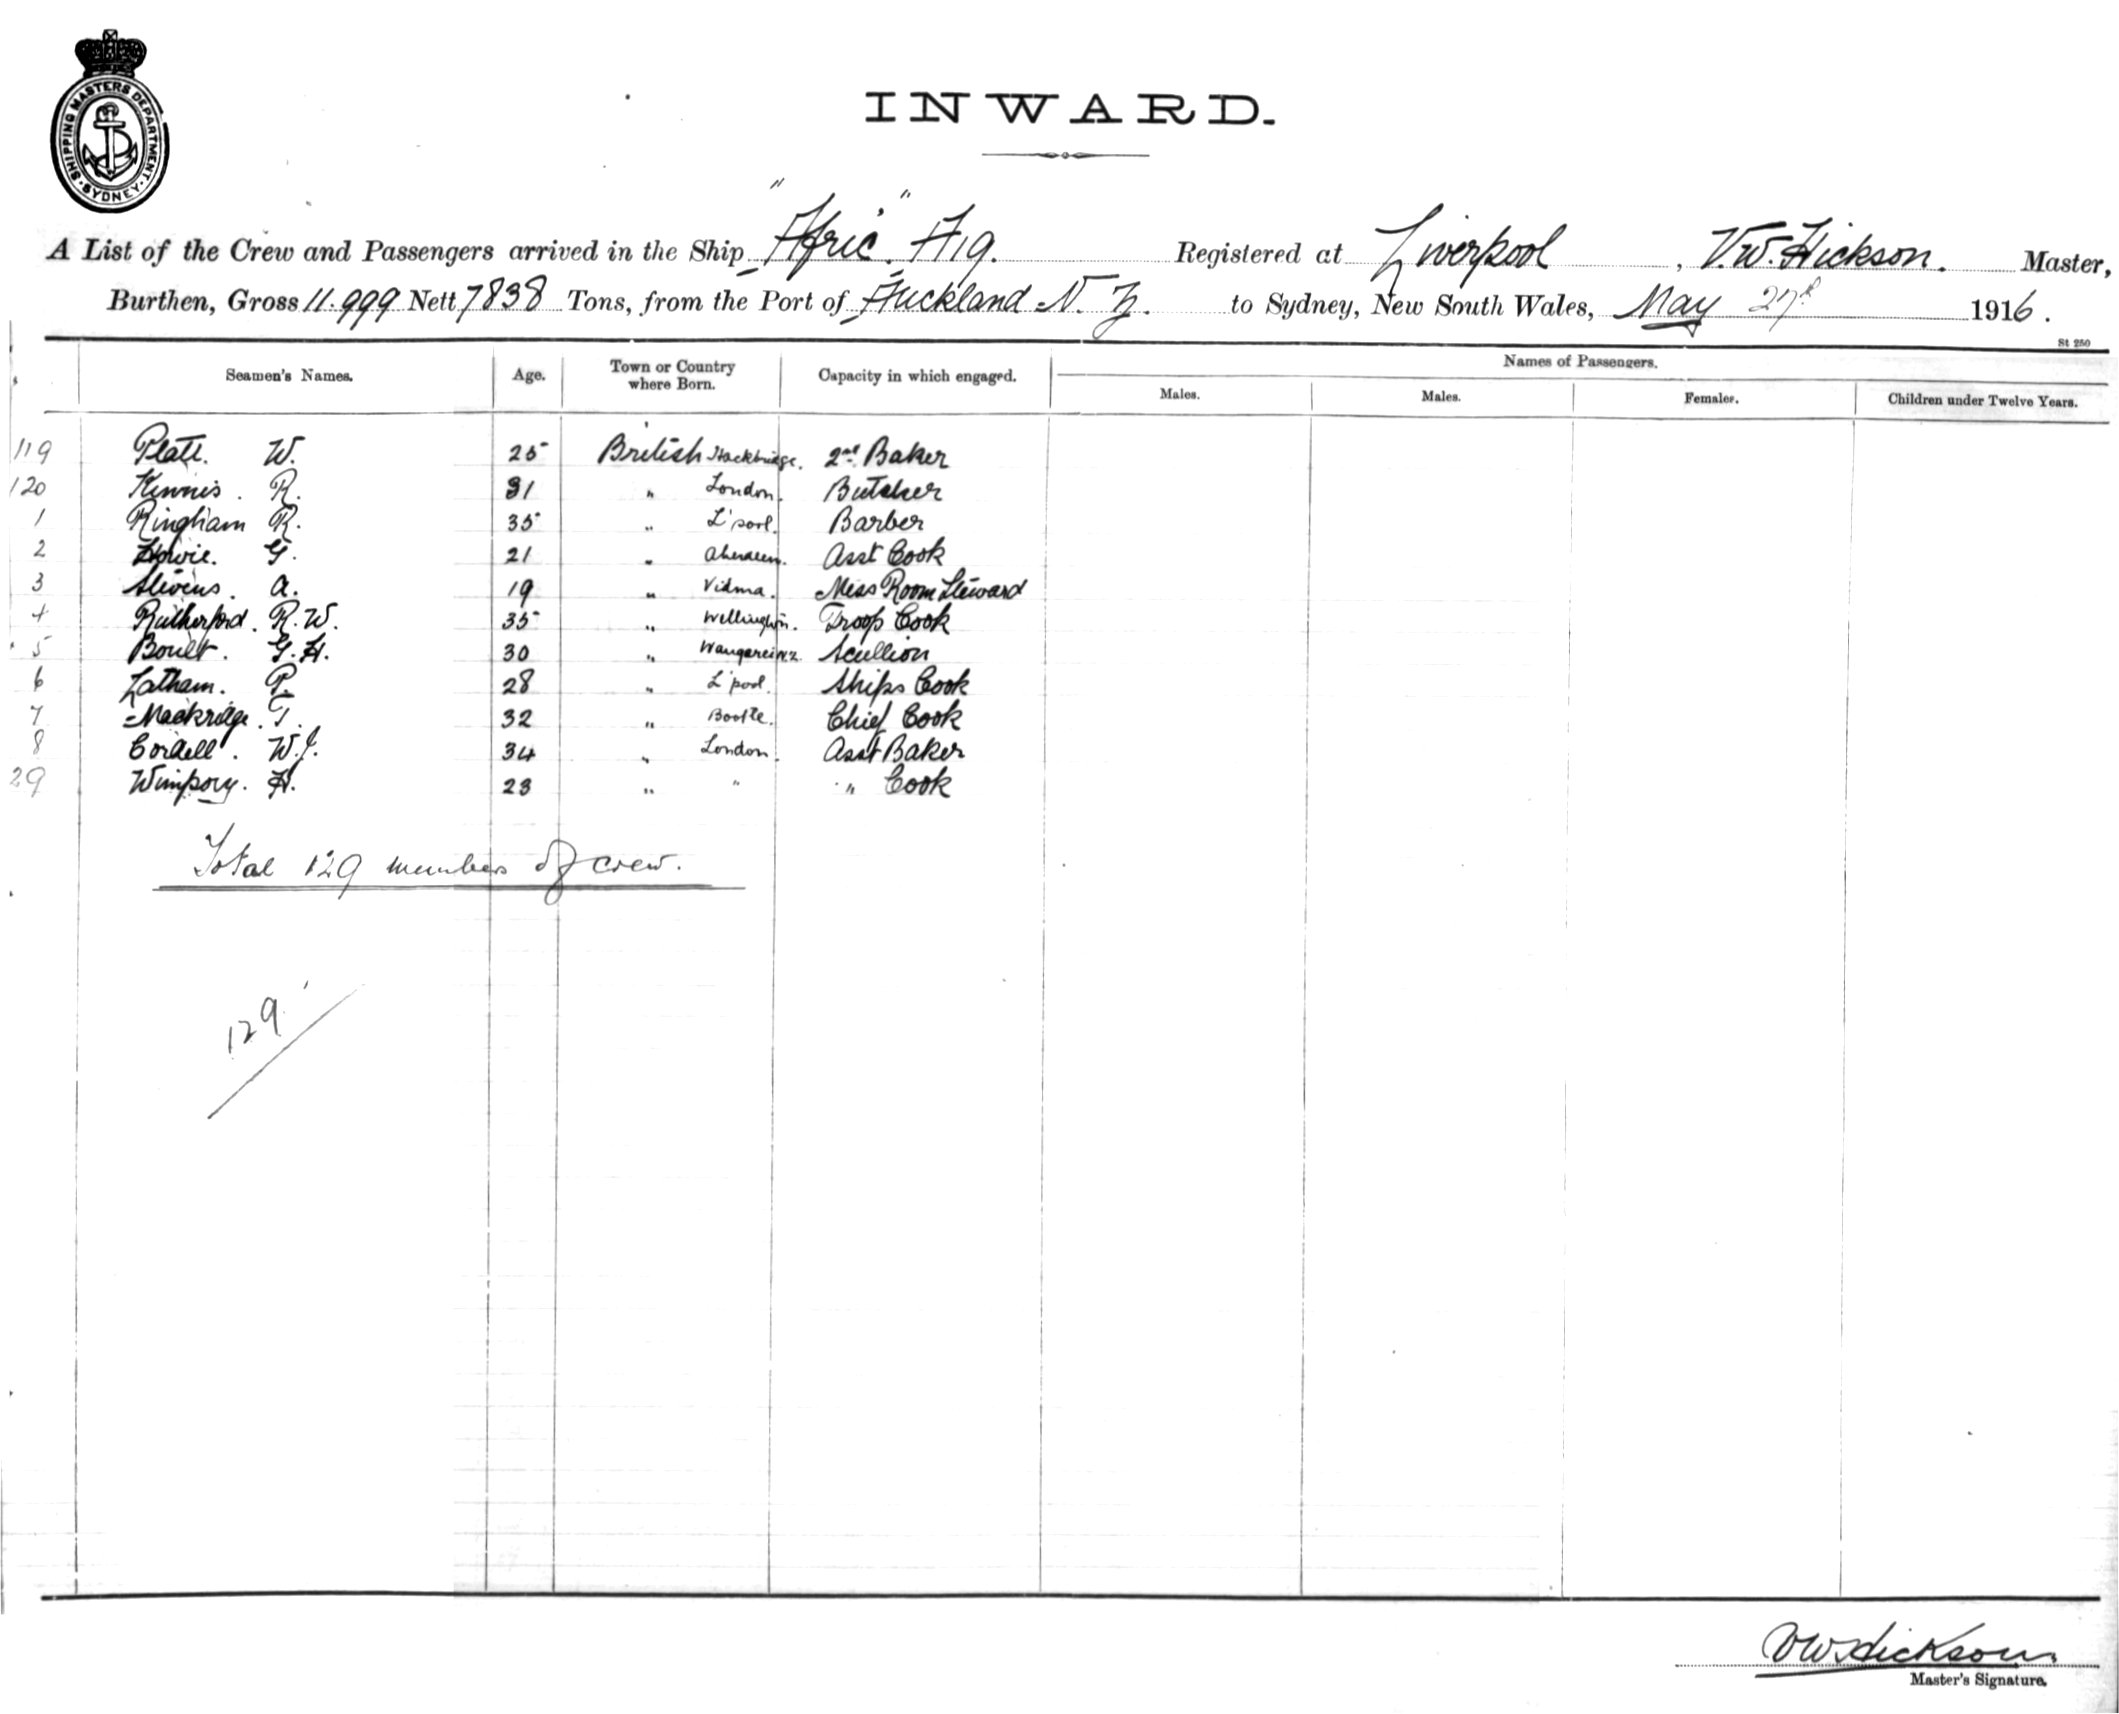 SHIPPING MASTERS DEPARTMENT. SYDNEY.
INWARD.
A List of the Crew and Passengers arrived in the Ship "Afric". A19. Registered at Liverpool, V.W. Hickson. Master,
Burthen, Gross 11.999 Nett 7838 Tons, from the Port of Auckland N.Z. to Sydney, New South Wales, May 27th 1916.
St 250
Seamen's Names. Age. Town or Country where Born. Capacity in which engaged. Names of Passengers.
Males. Males. Females. Children under Twelve Years.
119 Platt. W. 25 British Hackbridge. 2nd Baker
120 Kinnis. R. 31 " London. Butcher
1 Ringham R. 35 " L'pool. Barber
2 Howie. G. 21 " Aberdeen. Asst Cook
3 Stevens. A. 19 " Mess Room Steward
4 Rutherford. R.W. 35 " Wellington. Troop Cook
5 Boult. G.H. 30 " Wangarei N.Z. Scullion
6 Latham. P. 28 " L'pool. Ships Cook
7 Mackridge. T. 32 " Bootle. Chief Cook
8 Cordell. W.J. 34 " London. Asst Baker
29 Wimpory. H. 23 " " " Cook
Total 129 members of crew.
129
VW Hickson
Master's Signature.